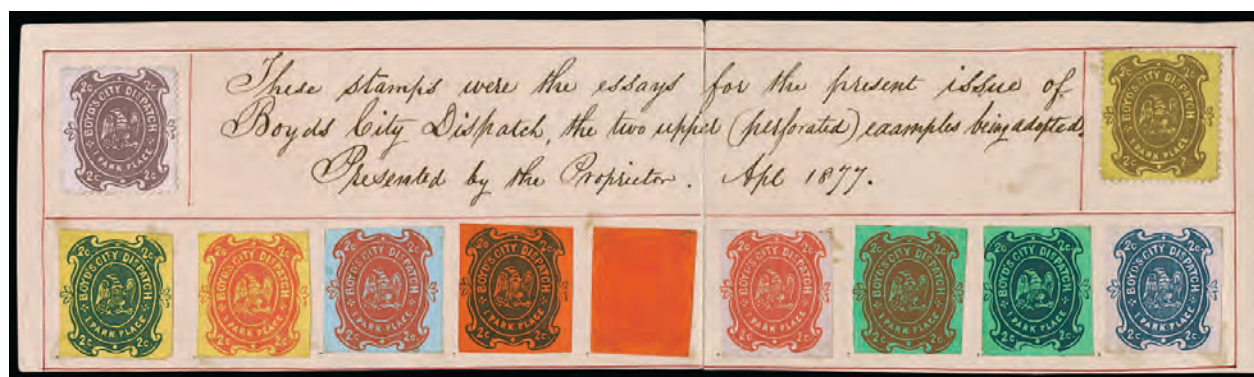 2c. 2c.
BOYD'S CITY DISPATCH
1 PARK PLACE
2c. 2c.
These stamps were the essays for the present issue of
Boyds City Dispatch, the two upper (perforated) examples being adopted.
Presented by the Proprietor. Apl 1877.
2c. 2c.
BOYD'S CITY DISPATCH
1 PARK PLACE
2c. 2c.
2c. 2c.
BOYD'S CITY DISPATCH
1 PARK PLACE
2c. 2c.
2c. 2c.
BOYD'S CITY DISPATCH
1 PARK PLACE
2c. 2c.
2c. 2c.
BOYD'S CITY DISPATCH
1 PARK PLACE
2c. 2c.
2c. 2c.
BOYD'S CITY DISPATCH
1 PARK PLACE
2c. 2c.
2c. 2c.
BOYD'S CITY DISPATCH
1 PARK PLACE
2c. 2c.
2c. 2c.
BOYD'S CITY DISPATCH
1 PARK PLACE
2c. 2c.
2c. 2c.
BOYD'S CITY DISPATCH
1 PARK PLACE
2c. 2c.
2c. 2c.
BOYD'S CITY DISPATCH
1 PARK PLACE
2c. 2c.